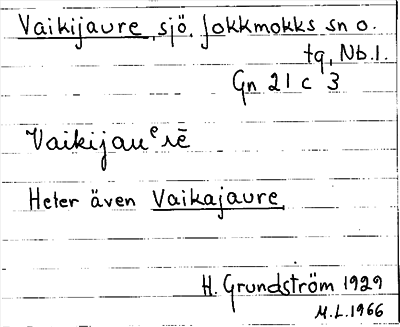 Vaikijaure, sjö, Jokkmokks sn o.
tg, Nb.l.
Gn 21 c 3
Vaikijauᵉrē
Heter även Vaikajaure.
H. Grundström 1929
M.L. 1966